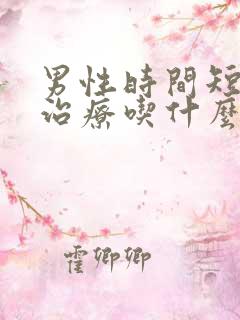 男性時間短
治療喫什麼
霍卿卿